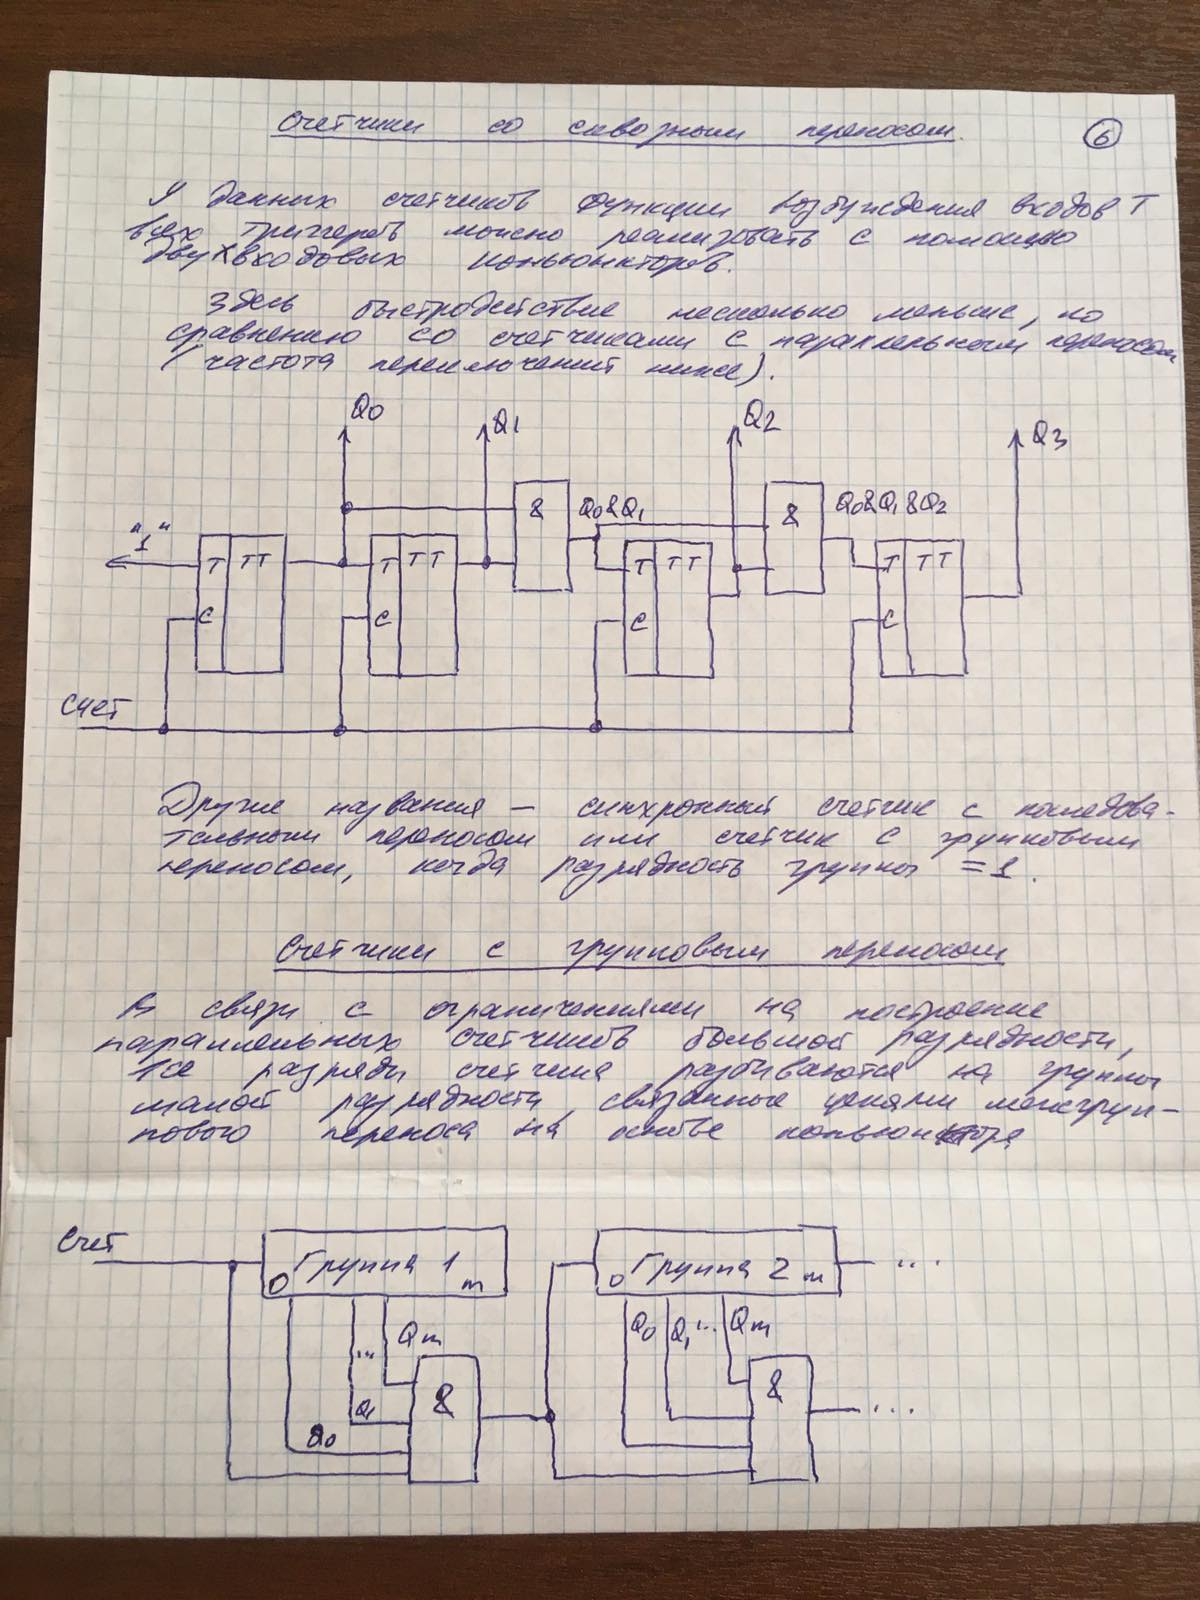 Счетчики со сквозным переносом.
6
У данных счетчиков функции возбуждения входов Т
всех триггеров можно реализовать с помощью
двухвходовых коньюнкторов.
Здесь быстродействие несколько меньше, по
сравнению со счетчиками с параллельным переносом
(частота переключений ниже).
Q0 Q1 Q2 Q3
& Q0&Q1 & Q0&Q1&Q2
"1" T TT T TT T TT T TT
C C C C
Счет
Другие названия – синхронный счетчик с последова-
тельным переносом или счетчик с групповым
переносом, когда разрядность группы = 1.
Счетчики с групповым переносом
В связи с ограничениями на построение
параллельных счетчиков большой разрядности,
все разряды счетчика разбиваются на группы
малой разрядности, связанные цепями межгруп-
пового переноса на основе коньюнктора
Счет 0 Группа 1 m 0 Группа 2 m ...
Q0 Q1 ... Qm & ...
Q0 Q1 ... Qm &